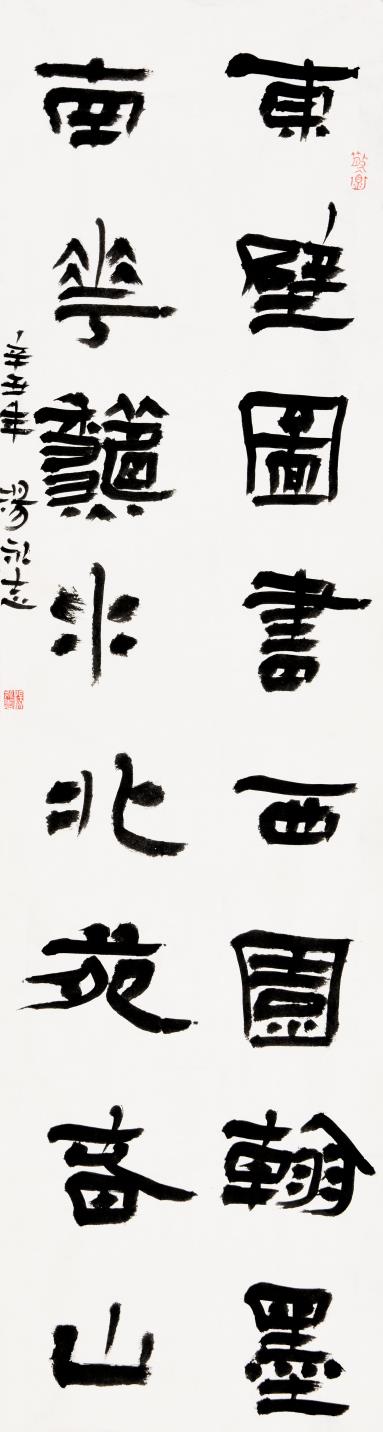 東壁圖書西園翰墨
南華龝水北苑春山
辛丑年 楊永志